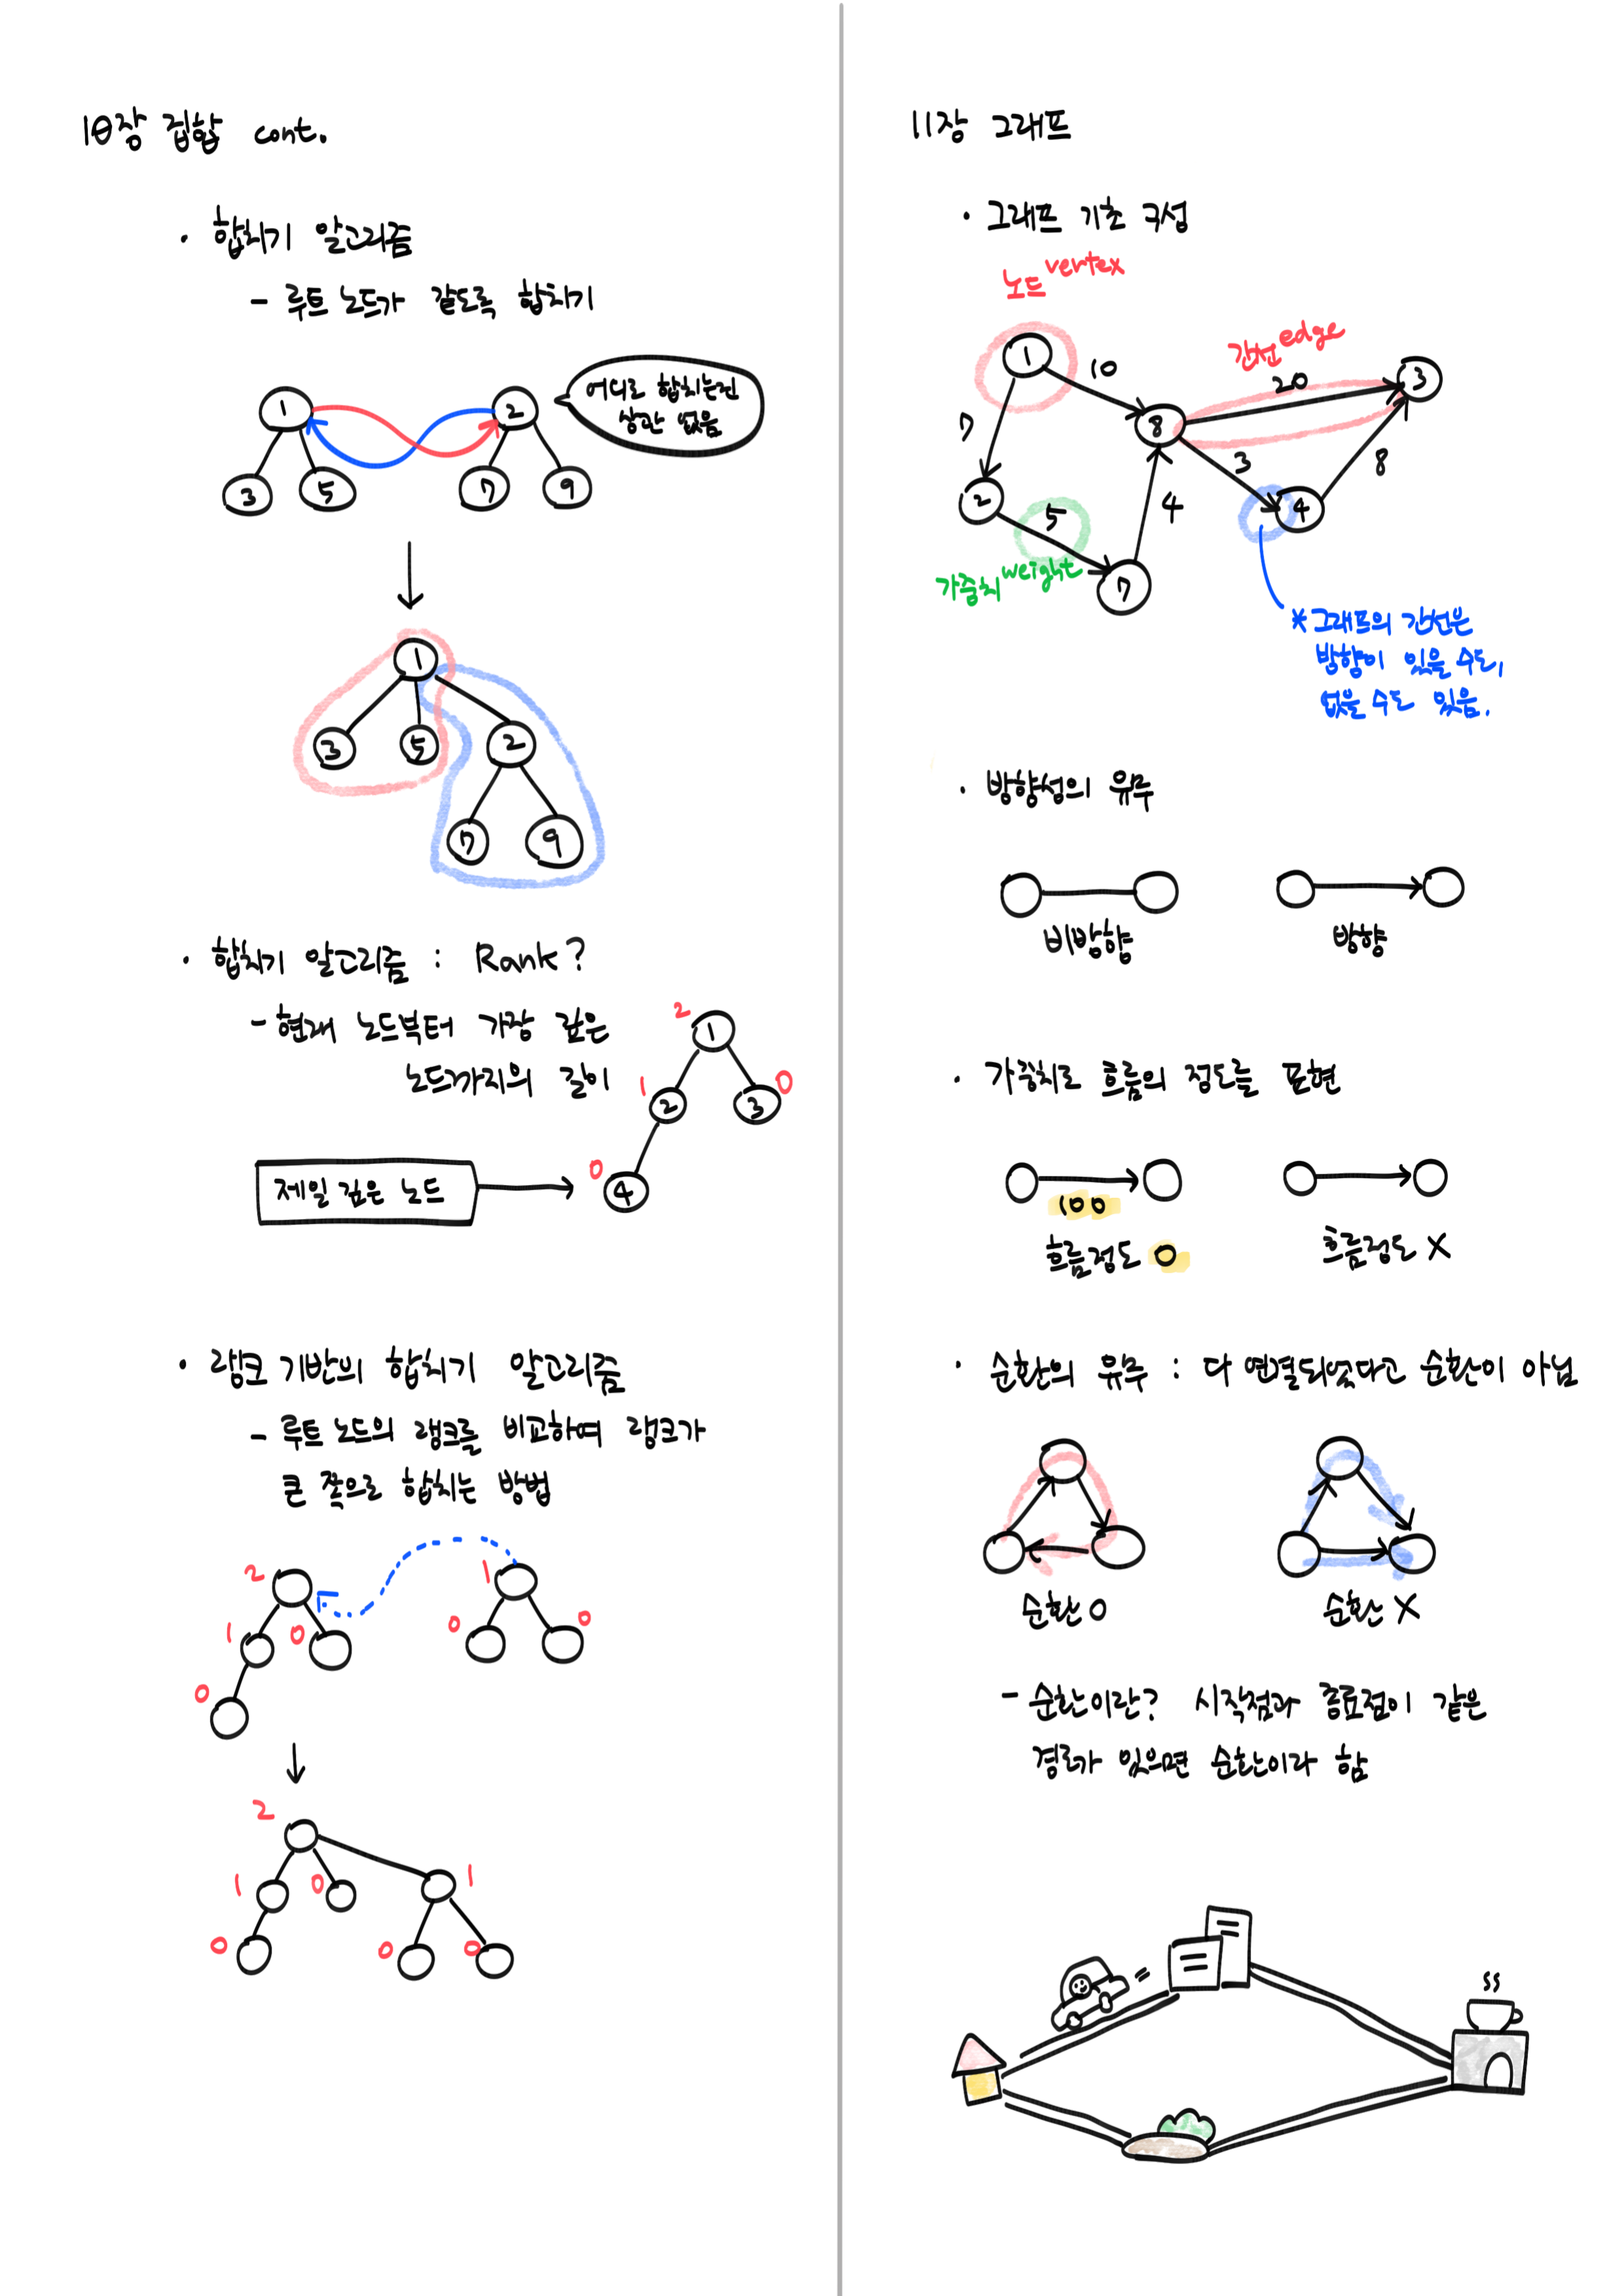 10장 집합 cont.
· 합치기 알고리즘
- 루트 노드가 같도록 합치기
1
2
어디로 합치는진
상관 없음
3
5
7
9
1
3
5
2
7
9
· 합치기 알고리즘 : Rank?
- 현재 노드부터 가장 깊은
노드까지의 길이
2
1
1
2
0
3
0
4
제일 깊은 노드
· 랭크 기반의 합치기 알고리즘
- 루트 노드의 랭크를 비교하여 랭크가
큰 쪽으로 합치는 방법
2
1
1
0
0
0
0
2
1
0
1
0
0
0
11장 그래프
· 그래프 기초 구성
노드 vertex
간선 edge
1
10
20
3
7
8
3
8
2
5
4
4
가중치 weight
7
*그래프의 간선은
방향이 있을 수도,
없을 수도 있음.
· 방향성의 유무
비방향
방향
· 가중치로 흐름의 정도를 표현
100
흐름정도 O
흐름정도 X
· 순환의 유무 : 다 연결되었다고 순환이 아님
순환 O
순환 X
- 순환이란? 시작점과 종료점이 같은
경로가 있으면 순환이라 함